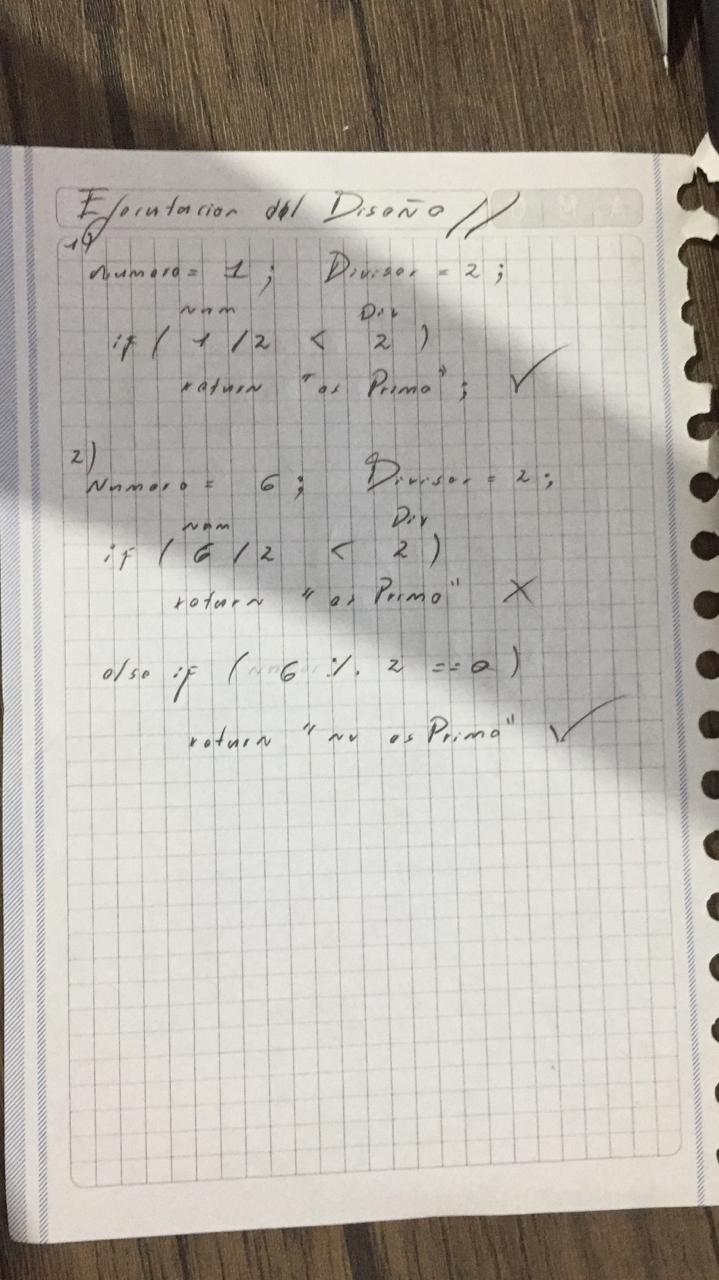 Ejecutacion del Diseño //
1)
Numero = 1 ; Divisor = 2 ;
num Div
if ( 1 / 2 < 2 )
return "es Primo" ; ✓
2)
Numero = 6 ; Divisor = 2 ;
num Div
if ( 6 / 2 < 2 )
return "es Primo" X
else if ( 6 % 2 == 0 )
return "no es Primo" ✓